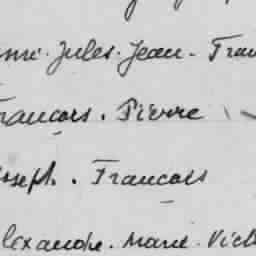 Jules. Jean. Fran
François. Pierre
oseph. François
lexandre. Marie. Vict